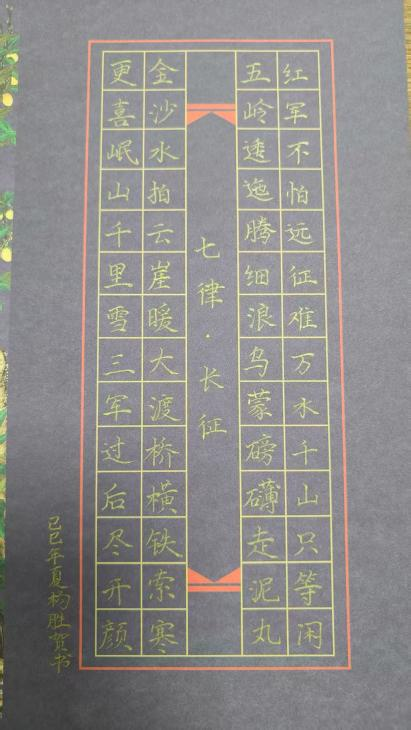 红军不怕远征难万水千山只等闲
五岭逶迤腾细浪乌蒙磅礴走泥丸
七律·长征
金沙水拍云崖暖大渡桥横铁索寒
更喜岷山千里雪三军过后尽开颜
己巳年夏杨胜贺书